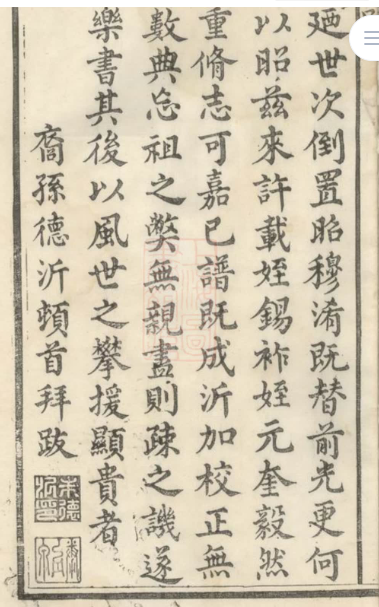 廼世次倒置昭穆淆既替前光更何
以昭茲來許載姪錫祚姪元奎毅然
重脩志可嘉已譜既成沂加校正無
數典忘祖之獘無親盡則疎之譏遂
樂書其後以風世之攀援顯貴者
裔孫德沂頓首拜跋
朱德沂印